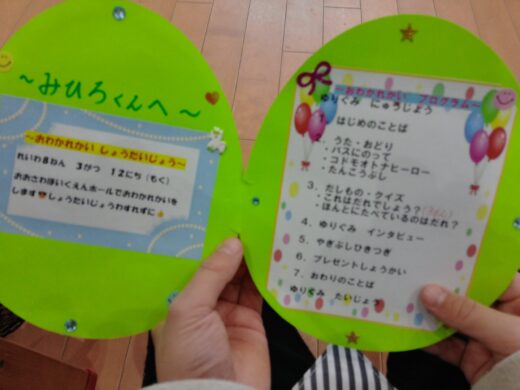 ～みひろくんへ～
～おわかれかい しょうたいじょう～
れいわ8ねん 3がつ 12にち(もく)
おおさわほいくえんホールでおわかれかいを
します しょうたいじょうわすれずに
～おわかれかい プログラム～
ゆりぐみ にゅうじょう
はじめのことば
・うた・おどり
・バスにのって
・コドモオトナヒーロー
・たんこうぶし
3. だしもの・クイズ
・これはだれでしょう？
・ほんとにたべているのはだれ？
4. ゆりぐみ インタビュー
5. やぎぶしひきつぎ
6. プレゼントしょうかい
7. おわりのことば
ゆりぐみ たいじょう